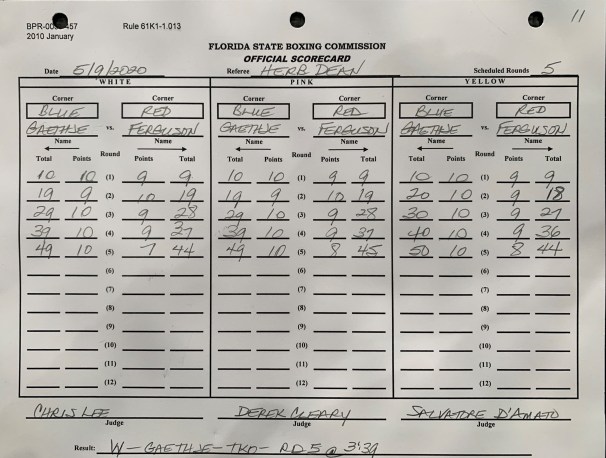 11
BPR-0 457 Rule 61K1-1.013
2010 January
FLORIDA STATE BOXING COMMISSION
OFFICIAL SCORECARD
Date 5/9/2020 Referee HERB DEAN Scheduled Rounds 5
WHITE PINK YELLOW
Corner Corner Corner Corner Corner Corner
BLUE RED BLUE RED BLUE RED
GAETHJE vs. FERGUSON GAETHJE vs. FERGUSON GAETHJE vs. FERGUSON
Name Name Name Name Name Name
Total Points Round Points Total Total Points Round Points Total Total Points Round Points Total
10 10 (1) 9 9 10 10 (1) 9 9 10 10 (1) 9 9
19 9 (2) 10 19 19 9 (2) 10 19 20 10 (2) 9 18
29 10 (3) 9 28 29 10 (3) 9 28 30 10 (3) 9 27
39 10 (4) 9 37 39 10 (4) 9 37 40 10 (4) 9 36
49 10 (5) 7 44 49 10 (5) 8 45 50 10 (5) 8 44
(6) (6) (6)
(7) (7) (7)
(8) (8) (8)
(9) (9) (9)
(10) (10) (10)
(11) (11) (11)
(12) (12) (12)
CHRIS LEE DEREK CLEARY SALVATORE D'AMATO
Judge Judge Judge
Result: W-GAETHJE-TKO- RD5 @ 3:39